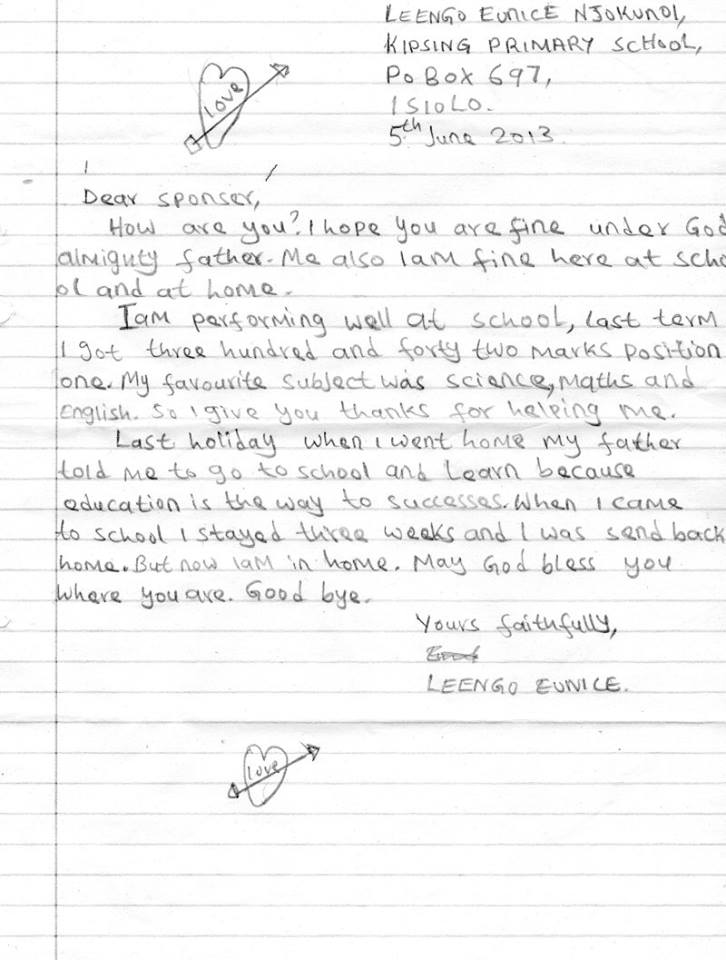 LEENGO EUNICE NJOKUNOI,
KIPSING PRIMARY SCHOOL,
PO BOX 697,
ISIOLO.
5th June 2013.
LOVE
Dear sponser,
How are you? I hope you are fine under God
almiguty father. Me also Iam fine here at scho
ol and at home.
Iam performing well at school, last term
I got three hundred and forty two marks position
one. My favourite subject was science, maths and
English. So I give you thanks for helping me.
Last holiday when I went home my father
told me to go to school and learn because
education is the way to successes. When I came
to school I stayed three weeks and I was send back
home. But now Iam in home. May God bless you
where you are. Good bye.
Yours faithfully,
LEENGO EUNICE.
Love